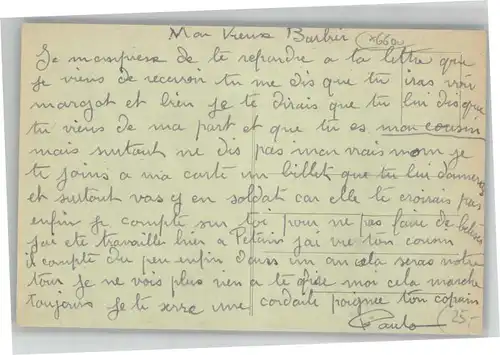 Mon Vieux Barbier *66a
Je m'empresse de te repondre a ta lettre que
je viens de recevoir tu me dis que tu iras voir
margot et bien je te dirais que tu lui dis que
tu viens de ma part et que tu es mon cousin
mais surtout ne dis pas mon vrais nom je
te joins a ma carte un billet que tu lui donneras
et surtout vas y en soldat car elle te croirais pas
enfin je compte sur toi pour ne pas faire de betises
j'ai ete travailler hier a Petain j'ai vue ton cousin
il compte du peu enfin dans un an cela seras notre
tour je ne vois plus rien a te dire moi cela marche
toujours je te serre une cordaile poignee ton copain
Paulo 25,-